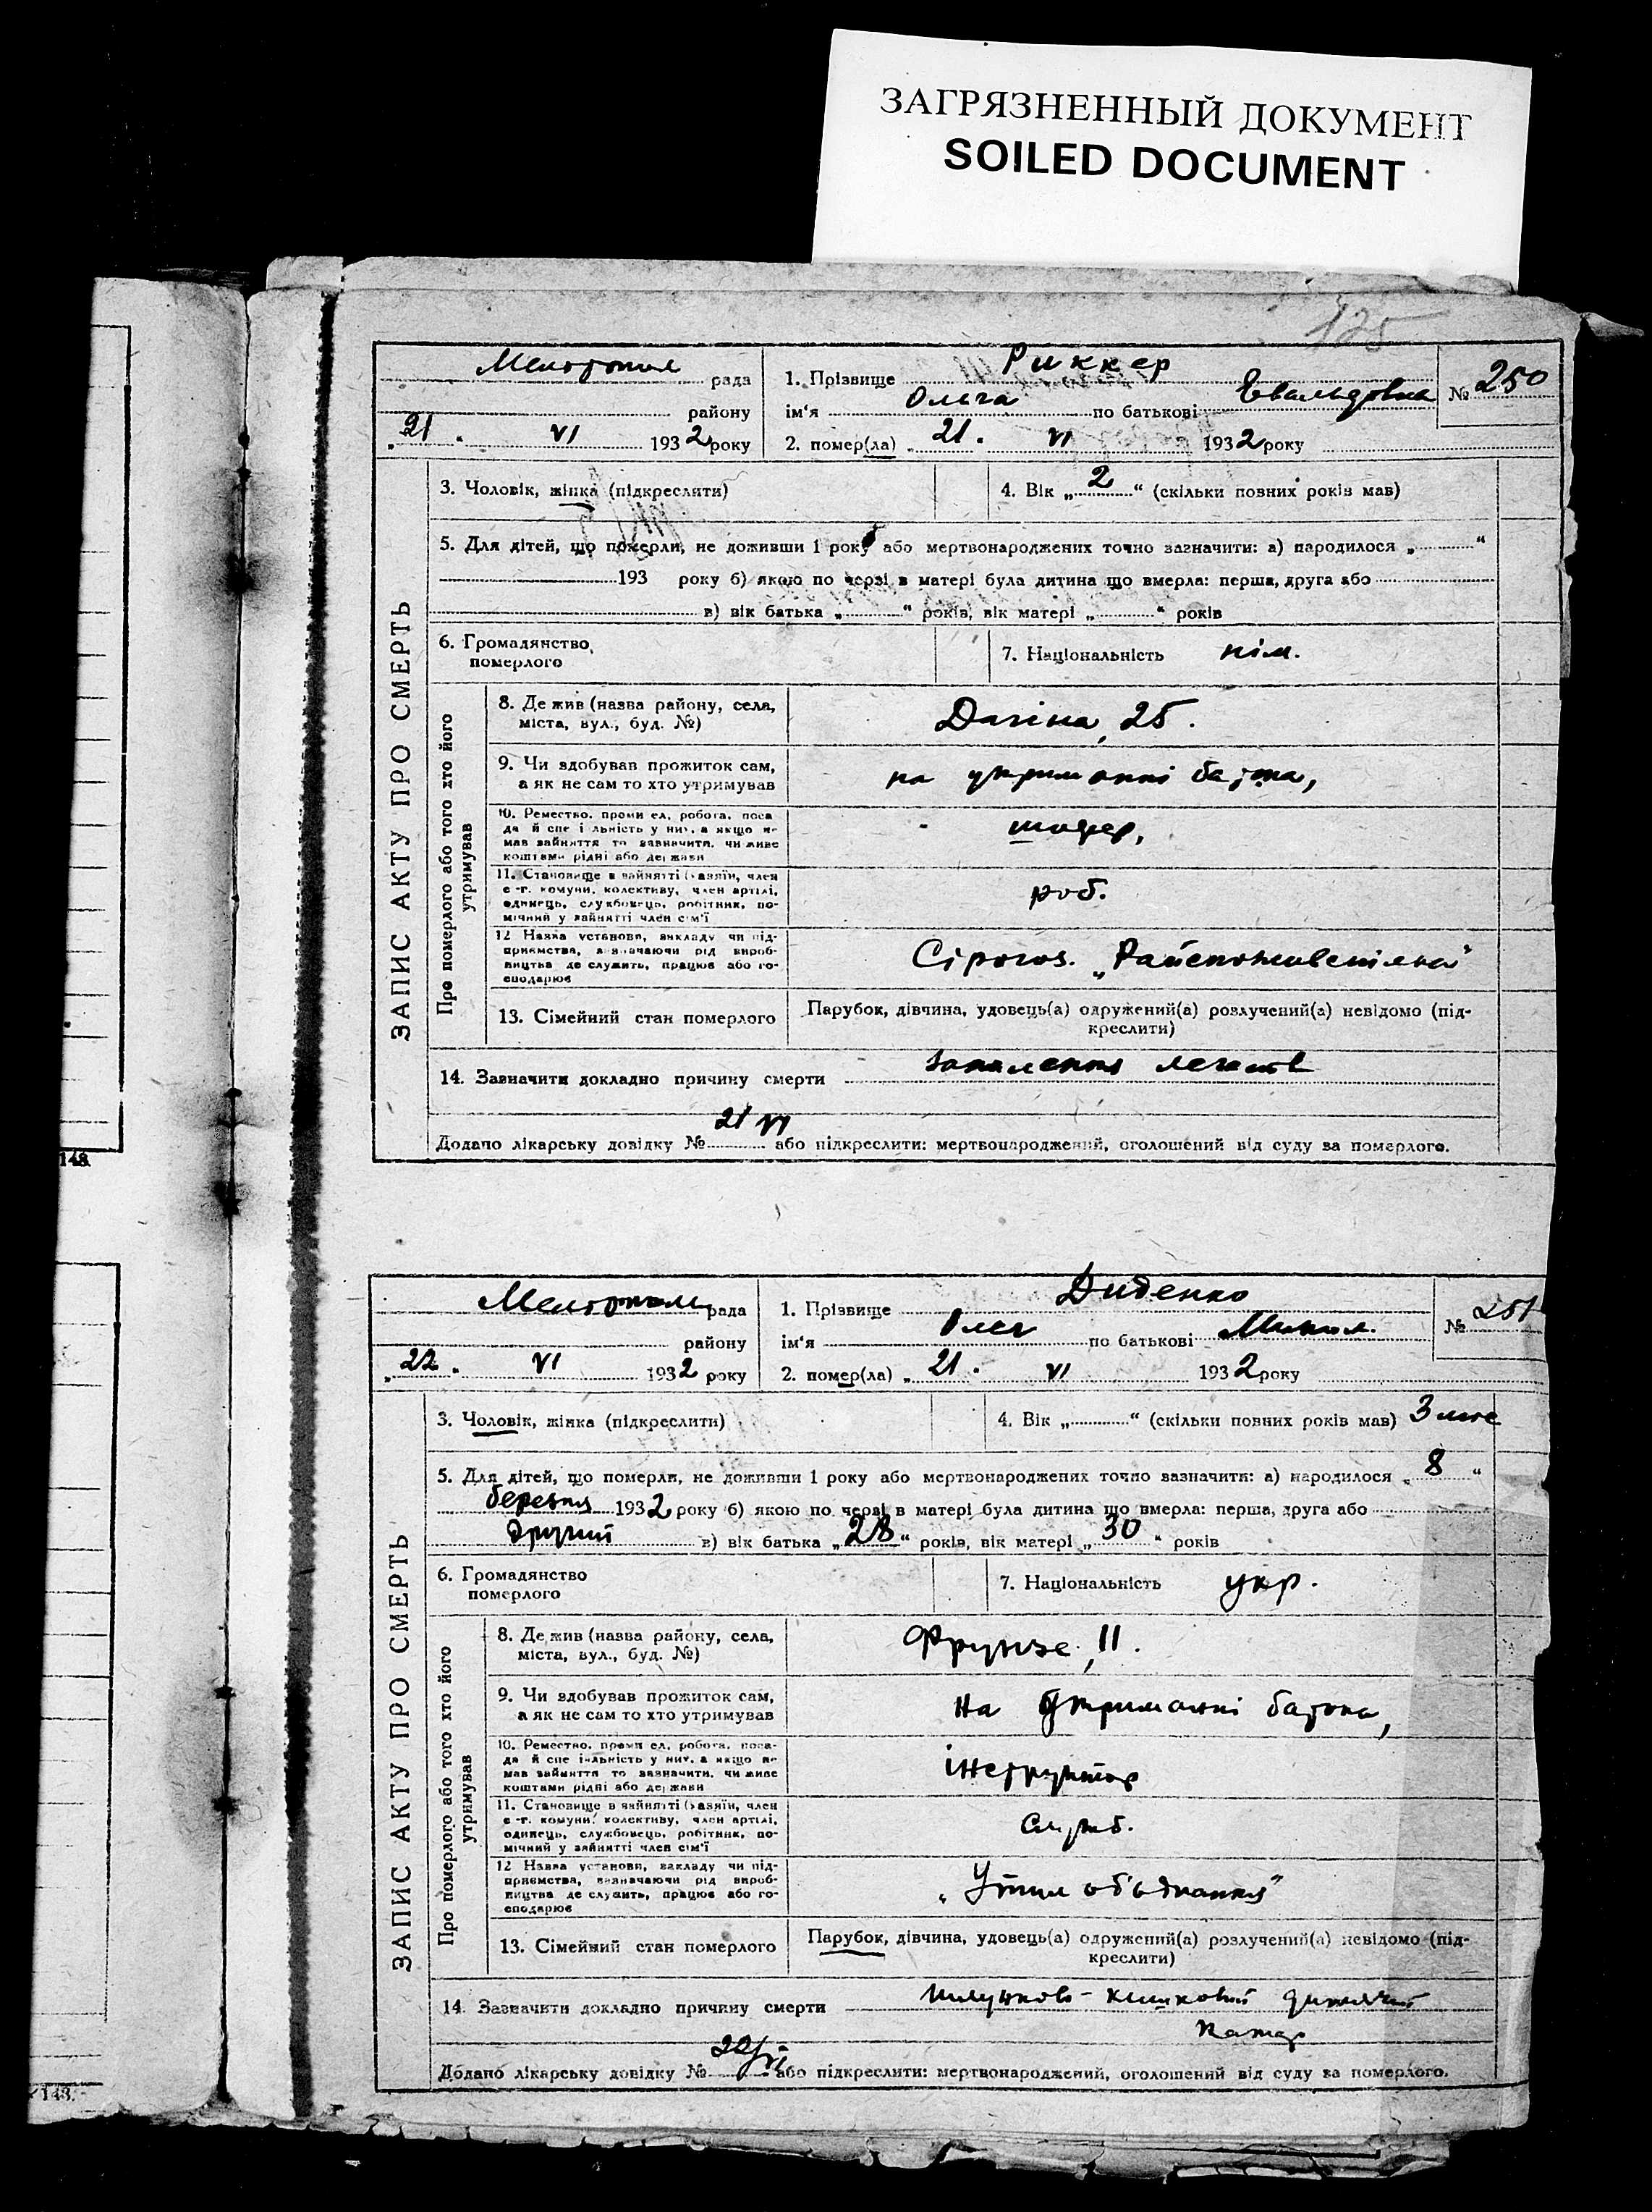 ЗАГРЯЗНЕННЫЙ ДОКУМЕНТ
SOILED DOCUMENT
125
ЗАПИС АКТУ ПРО СМЕРТЬ
рада
району
„21“ VI 1932 року
1. Прізвище Риккер
ім'я Ольга по батькові Евальдовна
№ 250
2. помер(ла) „21. VI 1932 року
3. Чоловік, жінка (підкреслити)
4. Вік „2“ (скільки повних років мав)
5. Для дітей, що померли, не доживши 1 року або мертвонароджених точно зазначити: а) народилося „ “
193 року б) якою по черзі в матері була дитина що вмерла: перша, друга або
в) вік батька „ “ років, вік матері „ “ років
6. Громадянство
померлого
7. Національність нім.
Про померлого або того хто його
утримував
8. Де жив (назва району, села,
міста, вул., буд. №)
25.
9. Чи здобував прожиток сам,
а як не сам то хто утримував
на утриманні батька,
10. Ремество, промисел, робота, поса
да й спеціяльність у них, а якщо не
мав зайняття то зазначити, чи живе
коштами рідні або держави
шофер,
11. Становище в зайнятті (хазяїн, член
с.-г. комуни, колективу, член артілі,
одинець, службовець, робітник, по-
мічний у зайнятті член сім'ї
роб.
12 Назва установи, закладу чи під-
приємства, зазначаючи рід вироб-
ництва де служить, працює або го-
сподарює
13. Сімейний стан померлого
Парубок, дівчина, удовець(а) одружений(а) розлучений(а) невідомо (під-
креслити)
14. Зазначити докладно причину смерти запалення легенів
21 VI
Додано лікарську довідку № або підкреслити: мертвонароджений, оголошений від суду за померлого.
148.
ЗАПИС АКТУ ПРО СМЕРТЬ
рада
району
„22“ VI 1932 року
1. Прізвище Диденко
ім'я Олег по батькові Микол.
№ 251
2. помер(ла) „21. VI 1932 року
3. Чоловік, жінка (підкреслити)
4. Вік „ “ (скільки повних років мав) 3 міс
5. Для дітей, що померли, не доживши 1 року або мертвонароджених точно зазначити: а) народилося „8“
березня 1932 року б) якою по черзі в матері була дитина що вмерла: перша, друга або
другий в) вік батька „28“ років, вік матері „30“ років
6. Громадянство
померлого
7. Національність укр.
Про померлого або того хто його
утримував
8. Де жив (назва району, села,
міста, вул., буд. №)
Фрунзе, 11.
9. Чи здобував прожиток сам,
а як не сам то хто утримував
на утриманні батька,
10. Ремество, промисел, робота, поса-
да й спеціяльність у них, а якщо не
мав зайняття то зазначити, чи живе
коштами рідні або держави
інструктор
11. Становище в зайнятті (хазяїн, член
с.-г. комуни, колективу, член артілі,
одинець, службовець, робітник, по-
мічний у зайнятті член сім'ї
служб.
12 Назва установи, закладу чи під-
приємства, зазначаючи рід вироб-
ництва де служить, працює або го-
сподарює
13. Сімейний стан померлого
Парубок, дівчина, удовець(а) одружений(а) розлучений(а) невідомо (під-
креслити)
14. Зазначити докладно причину смерти шлунково-кишковий дитячий
катар
22/VI
Додано лікарську довідку № або підкреслити: мертвонароджений, оголошений від суду за померлого.
148.